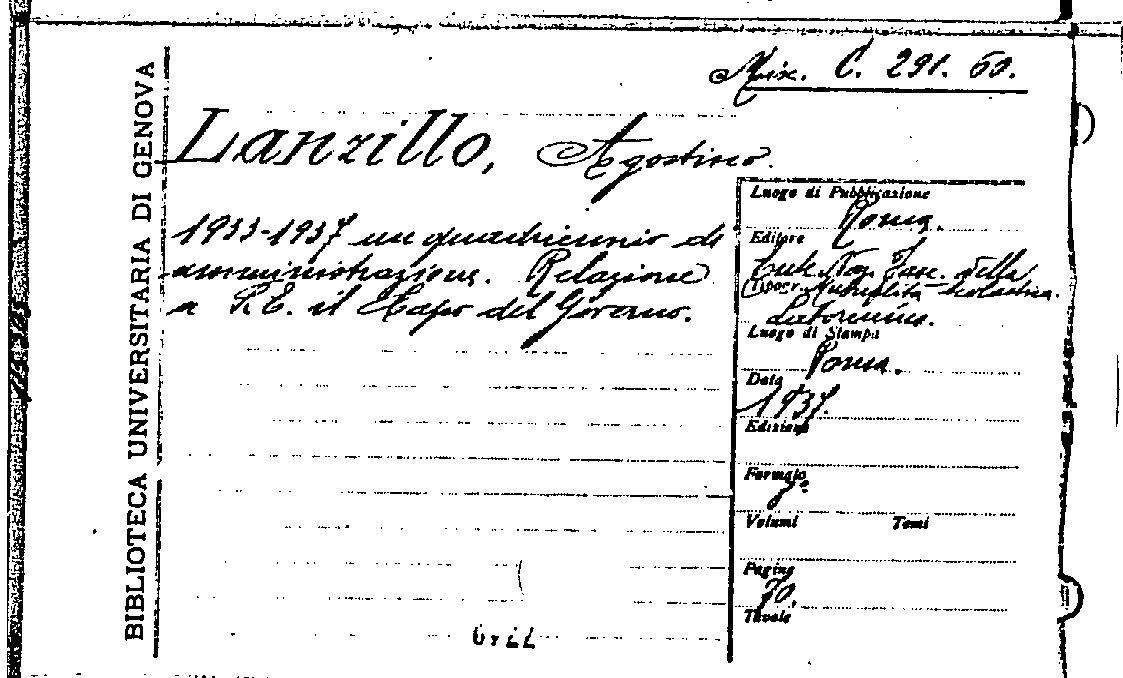 BIBLIOTECA UNIVERSITARIA DI GENOVA
Mix. C. 291. 60.
Lanzillo, Agostino.
1933-1937 un quadriennio di
amministrazione. Relazione
a S.E. il Capo del Governo.
Luogo di Pubblicazione
Roma.
Editore
Fasc. della
Tipogr. Mutualità scolastica.
Luogo di Stampa
Roma.
Data
1937.
Edizione
Formato
Volumi Tomi
Pagine
70.
Tavole